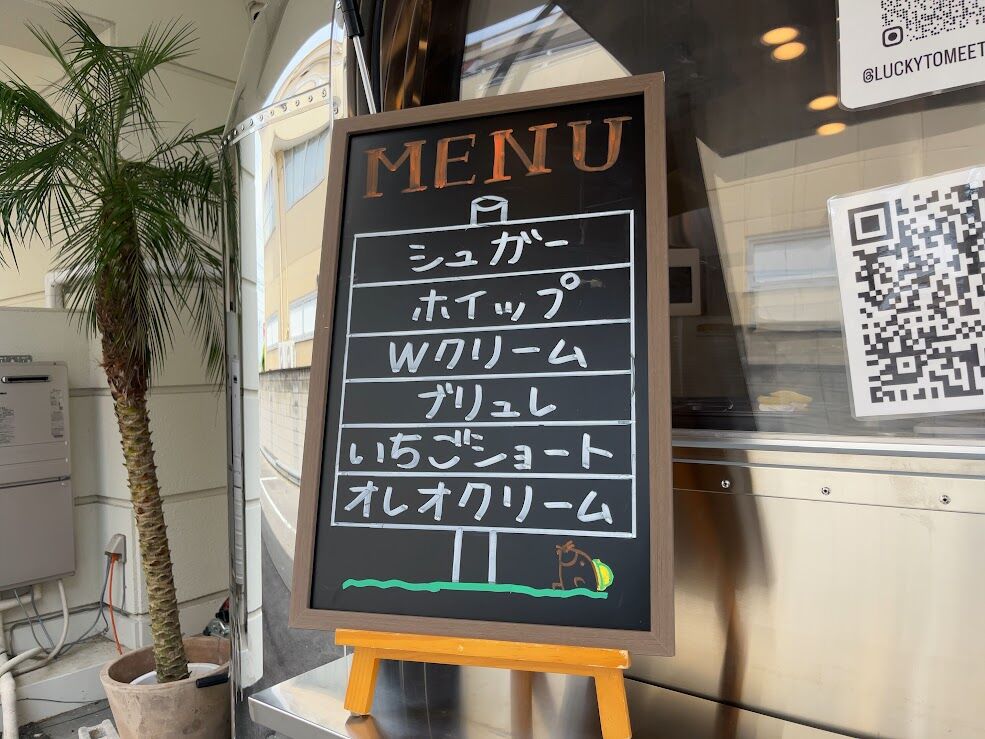 MENU
シュガー
ホイップ
Wクリーム
ブリュレ
いちごショート
オレオクリーム
@LUCKYTOMEET